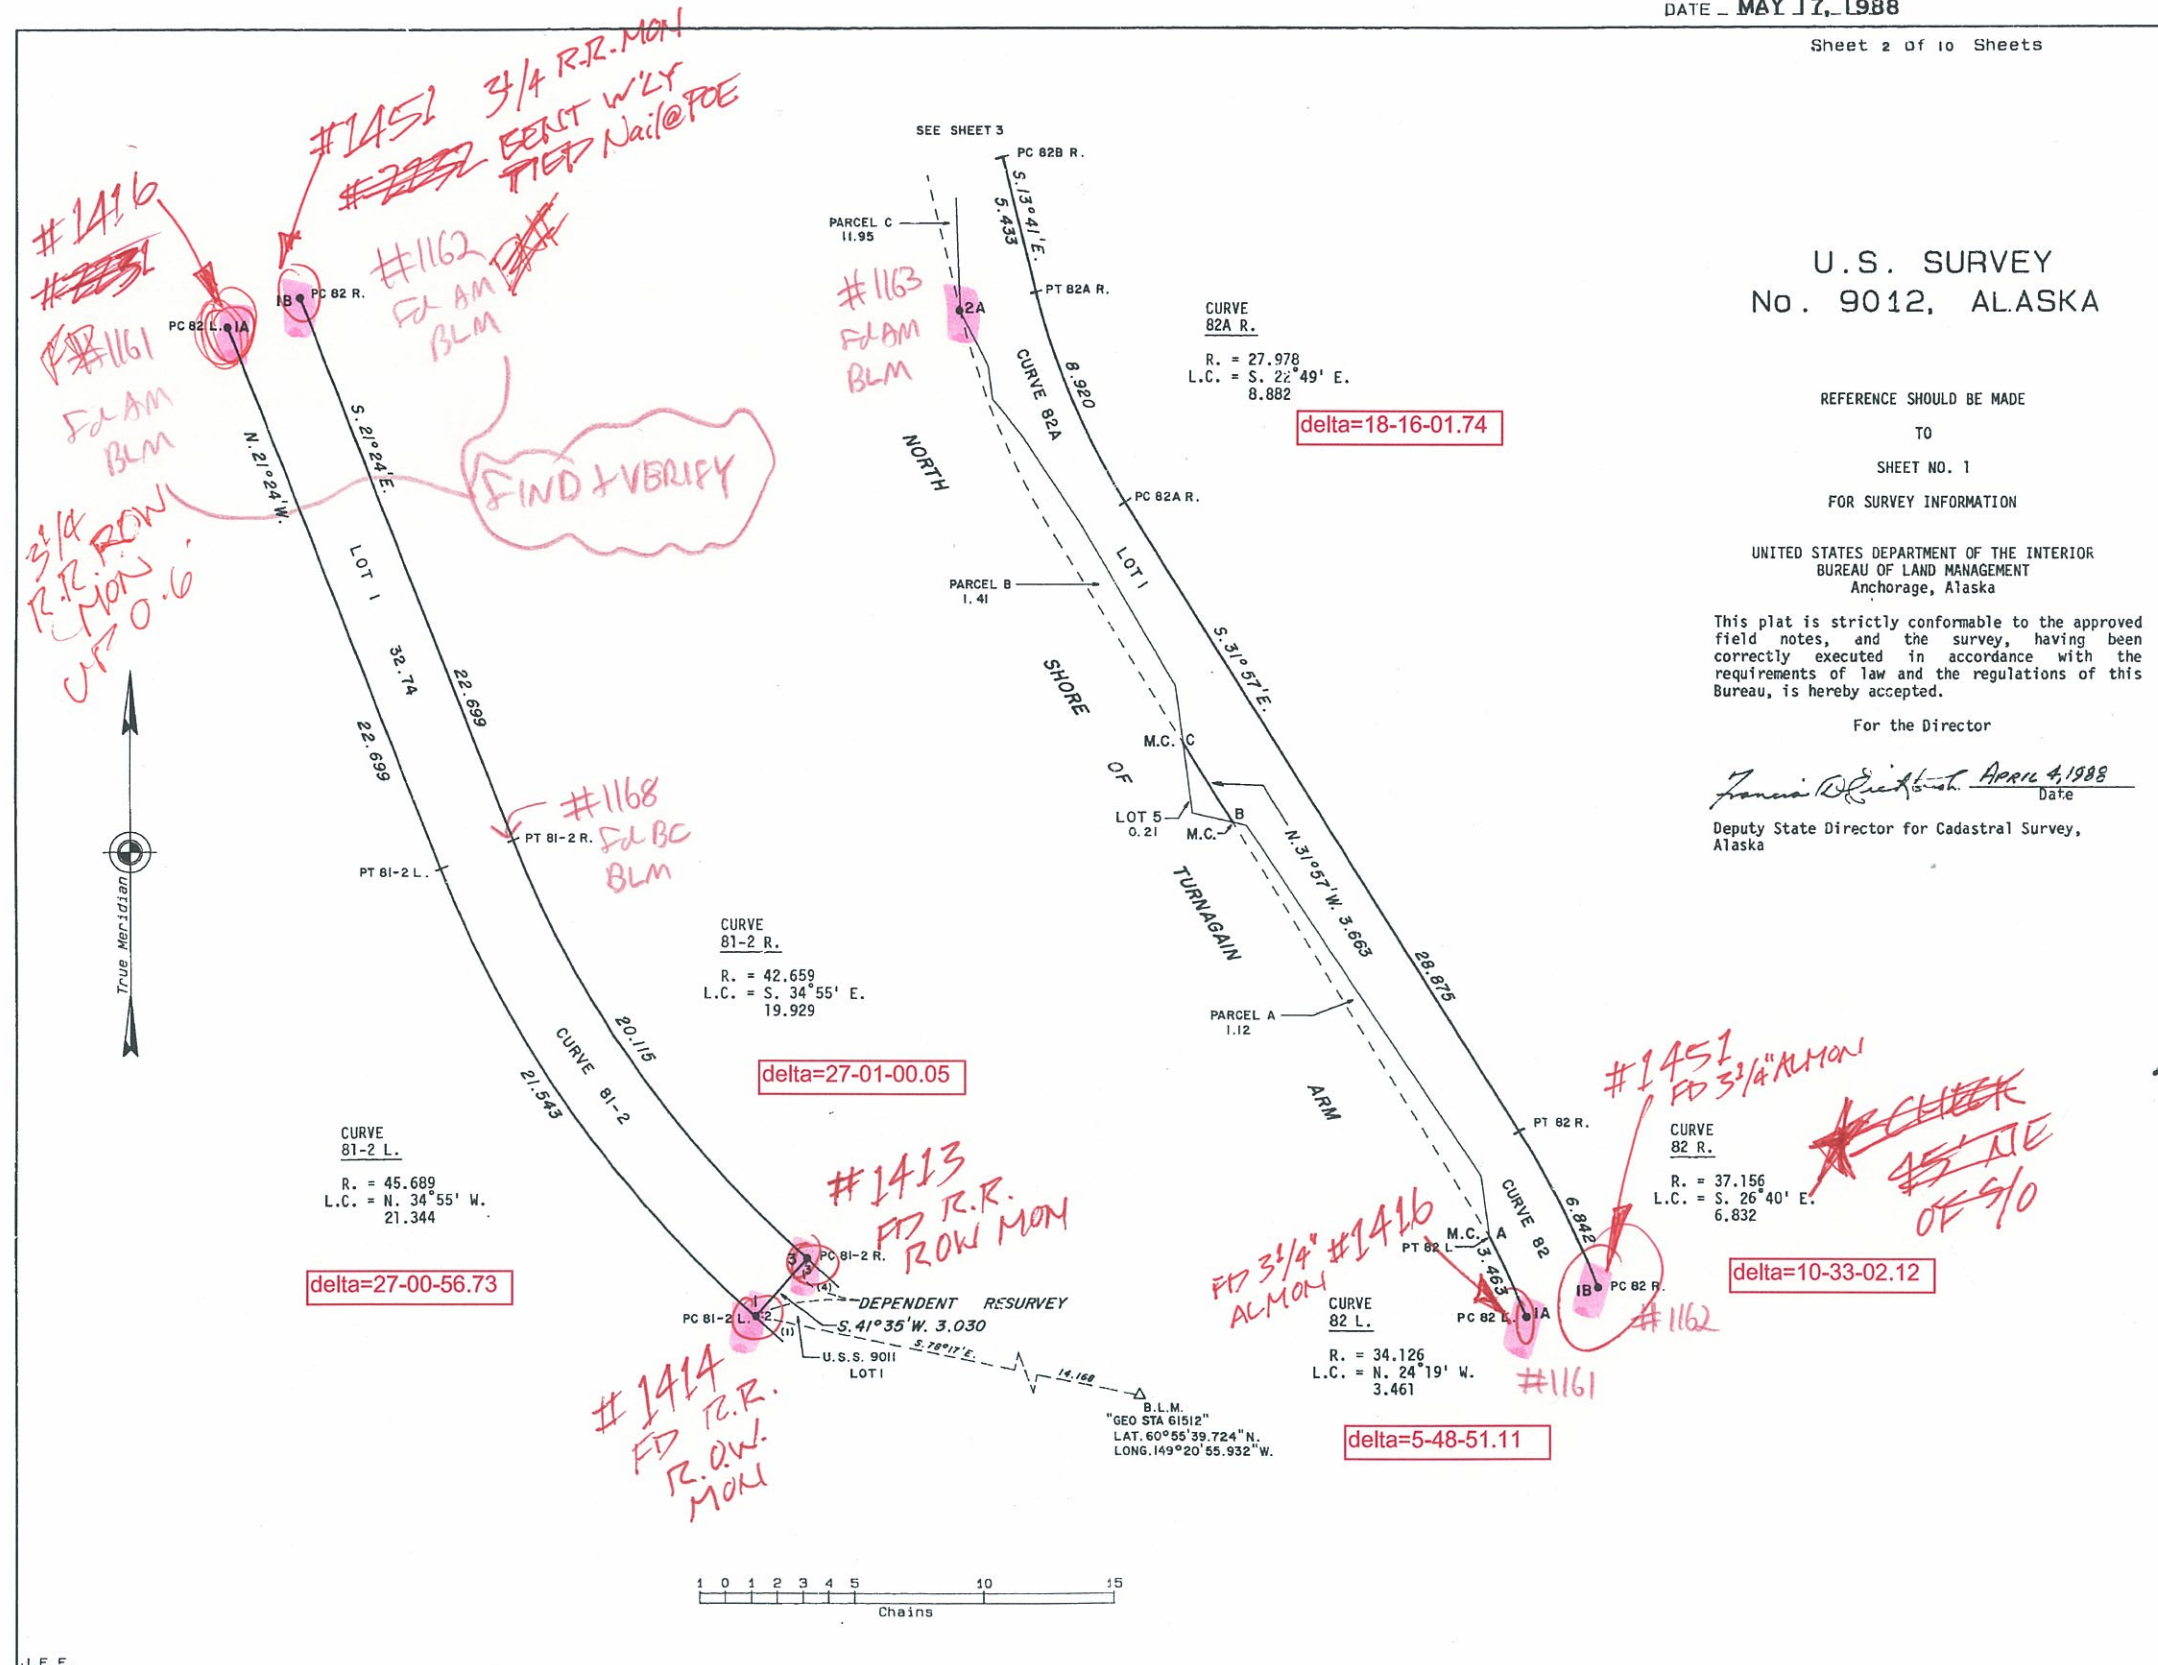 DATE _ MAY 17, 1988
Sheet 2 of 10 Sheets
U.S. SURVEY
No. 9012, ALASKA
REFERENCE SHOULD BE MADE
TO
SHEET NO. 1
FOR SURVEY INFORMATION
UNITED STATES DEPARTMENT OF THE INTERIOR
BUREAU OF LAND MANAGEMENT
Anchorage, Alaska
This plat is strictly conformable to the approved
field notes, and the survey, having been
correctly executed in accordance with the
requirements of law and the regulations of this
Bureau, is hereby accepted.
For the Director
APRIL 4, 1988
Date
Deputy State Director for Cadastral Survey,
Alaska
#1451 3 1/4 R.R. MON
#2232 BENT W'LY
TIED Nail@POE
#1416
#2231
#1161
Fd AM
BLM
3 1/4
R.R. ROW
MON
UP 0.6'
#1162
Fd AM
BLM
FIND & VERIFY
PC 82 L. 1A
1B PC 82 R.
N. 21°24' W.
22.699
S. 21°24' E.
22.699
LOT 1 32.74
#1168
Fd BC
BLM
PT 81-2 R.
PT 81-2 L.
True Meridian
CURVE
81-2 R.
R. = 42.659
L.C. = S. 34°55' E.
19.929
delta=27-01-00.05
20.115
CURVE 81-2
21.543
CURVE
81-2 L.
R. = 45.689
L.C. = N. 34°55' W.
21.344
delta=27-00-56.73
#1413
FD R.R.
ROW MON
3 PC 81-2 R.
3
(4)
PC 81-2 L. 2
1
(1)
DEPENDENT RESURVEY
S. 41°35' W. 3.030
U.S.S. 9011
LOT 1
S. 78°17' E.
14.168
B.L.M.
"GEO STA 61512"
LAT. 60°55'39.724" N.
LONG. 149°20'55.932" W.
#1414
FD R.R.
R.O.W.
MON
SEE SHEET 3
PC 82B R.
S. 13°41' E.
5.433
PARCEL C
11.95
#1163
Fd AM
BLM
2A
PT 82A R.
CURVE
82A R.
R. = 27.978
L.C. = S. 22°49' E.
8.882
delta=18-16-01.74
CURVE 82A
8.920
PC 82A R.
NORTH
SHORE
OF
TURNAGAIN
ARM
LOT 1
PARCEL B
1.41
S. 31°57' E.
28.875
M.C. C
LOT 5
0.21
M.C.
B
N. 31°57' W. 3.663
PARCEL A
1.12
PT 82 R.
#1451
FD 3 1/4" ALMON
CURVE
82 R.
R. = 37.156
L.C. = S. 26°40' E.
6.832
delta=10-33-02.12
CHECK
45' NE
OF S/O
CURVE 82
6.842
M.C. A
PT 82 L.
3.463
FD 3 1/4" #1416
ALMON
CURVE
82 L.
R. = 34.126
L.C. = N. 24°19' W.
3.461
delta=5-48-51.11
PC 82 L. 1A
#1161
1B PC 82 R.
#1162
1 0 1 2 3 4 5 10 15
Chains